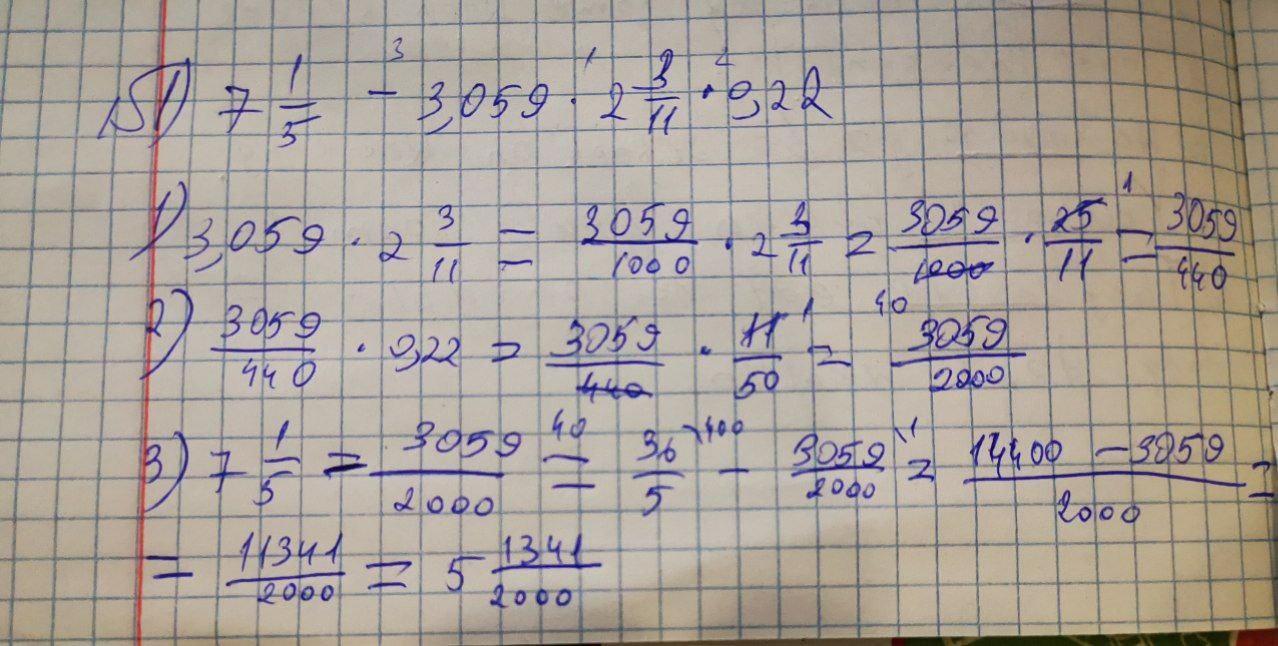 №1) 7 1/5 - 3,059 · 2 3/11 · 0,22
1) 3,059 · 2 3/11 = 3059/1000 · 2 3/11 = 3059/1000 · 25/11 = 3059/440
2) 3059/440 · 0,22 = 3059/440 · 11/50 = 3059/2000
3) 7 1/5 - 3059/2000 = 36/5 \400 - 3059/2000 \1 = 14400 - 3059/2000 =
= 11341/2000 = 5 1341/2000